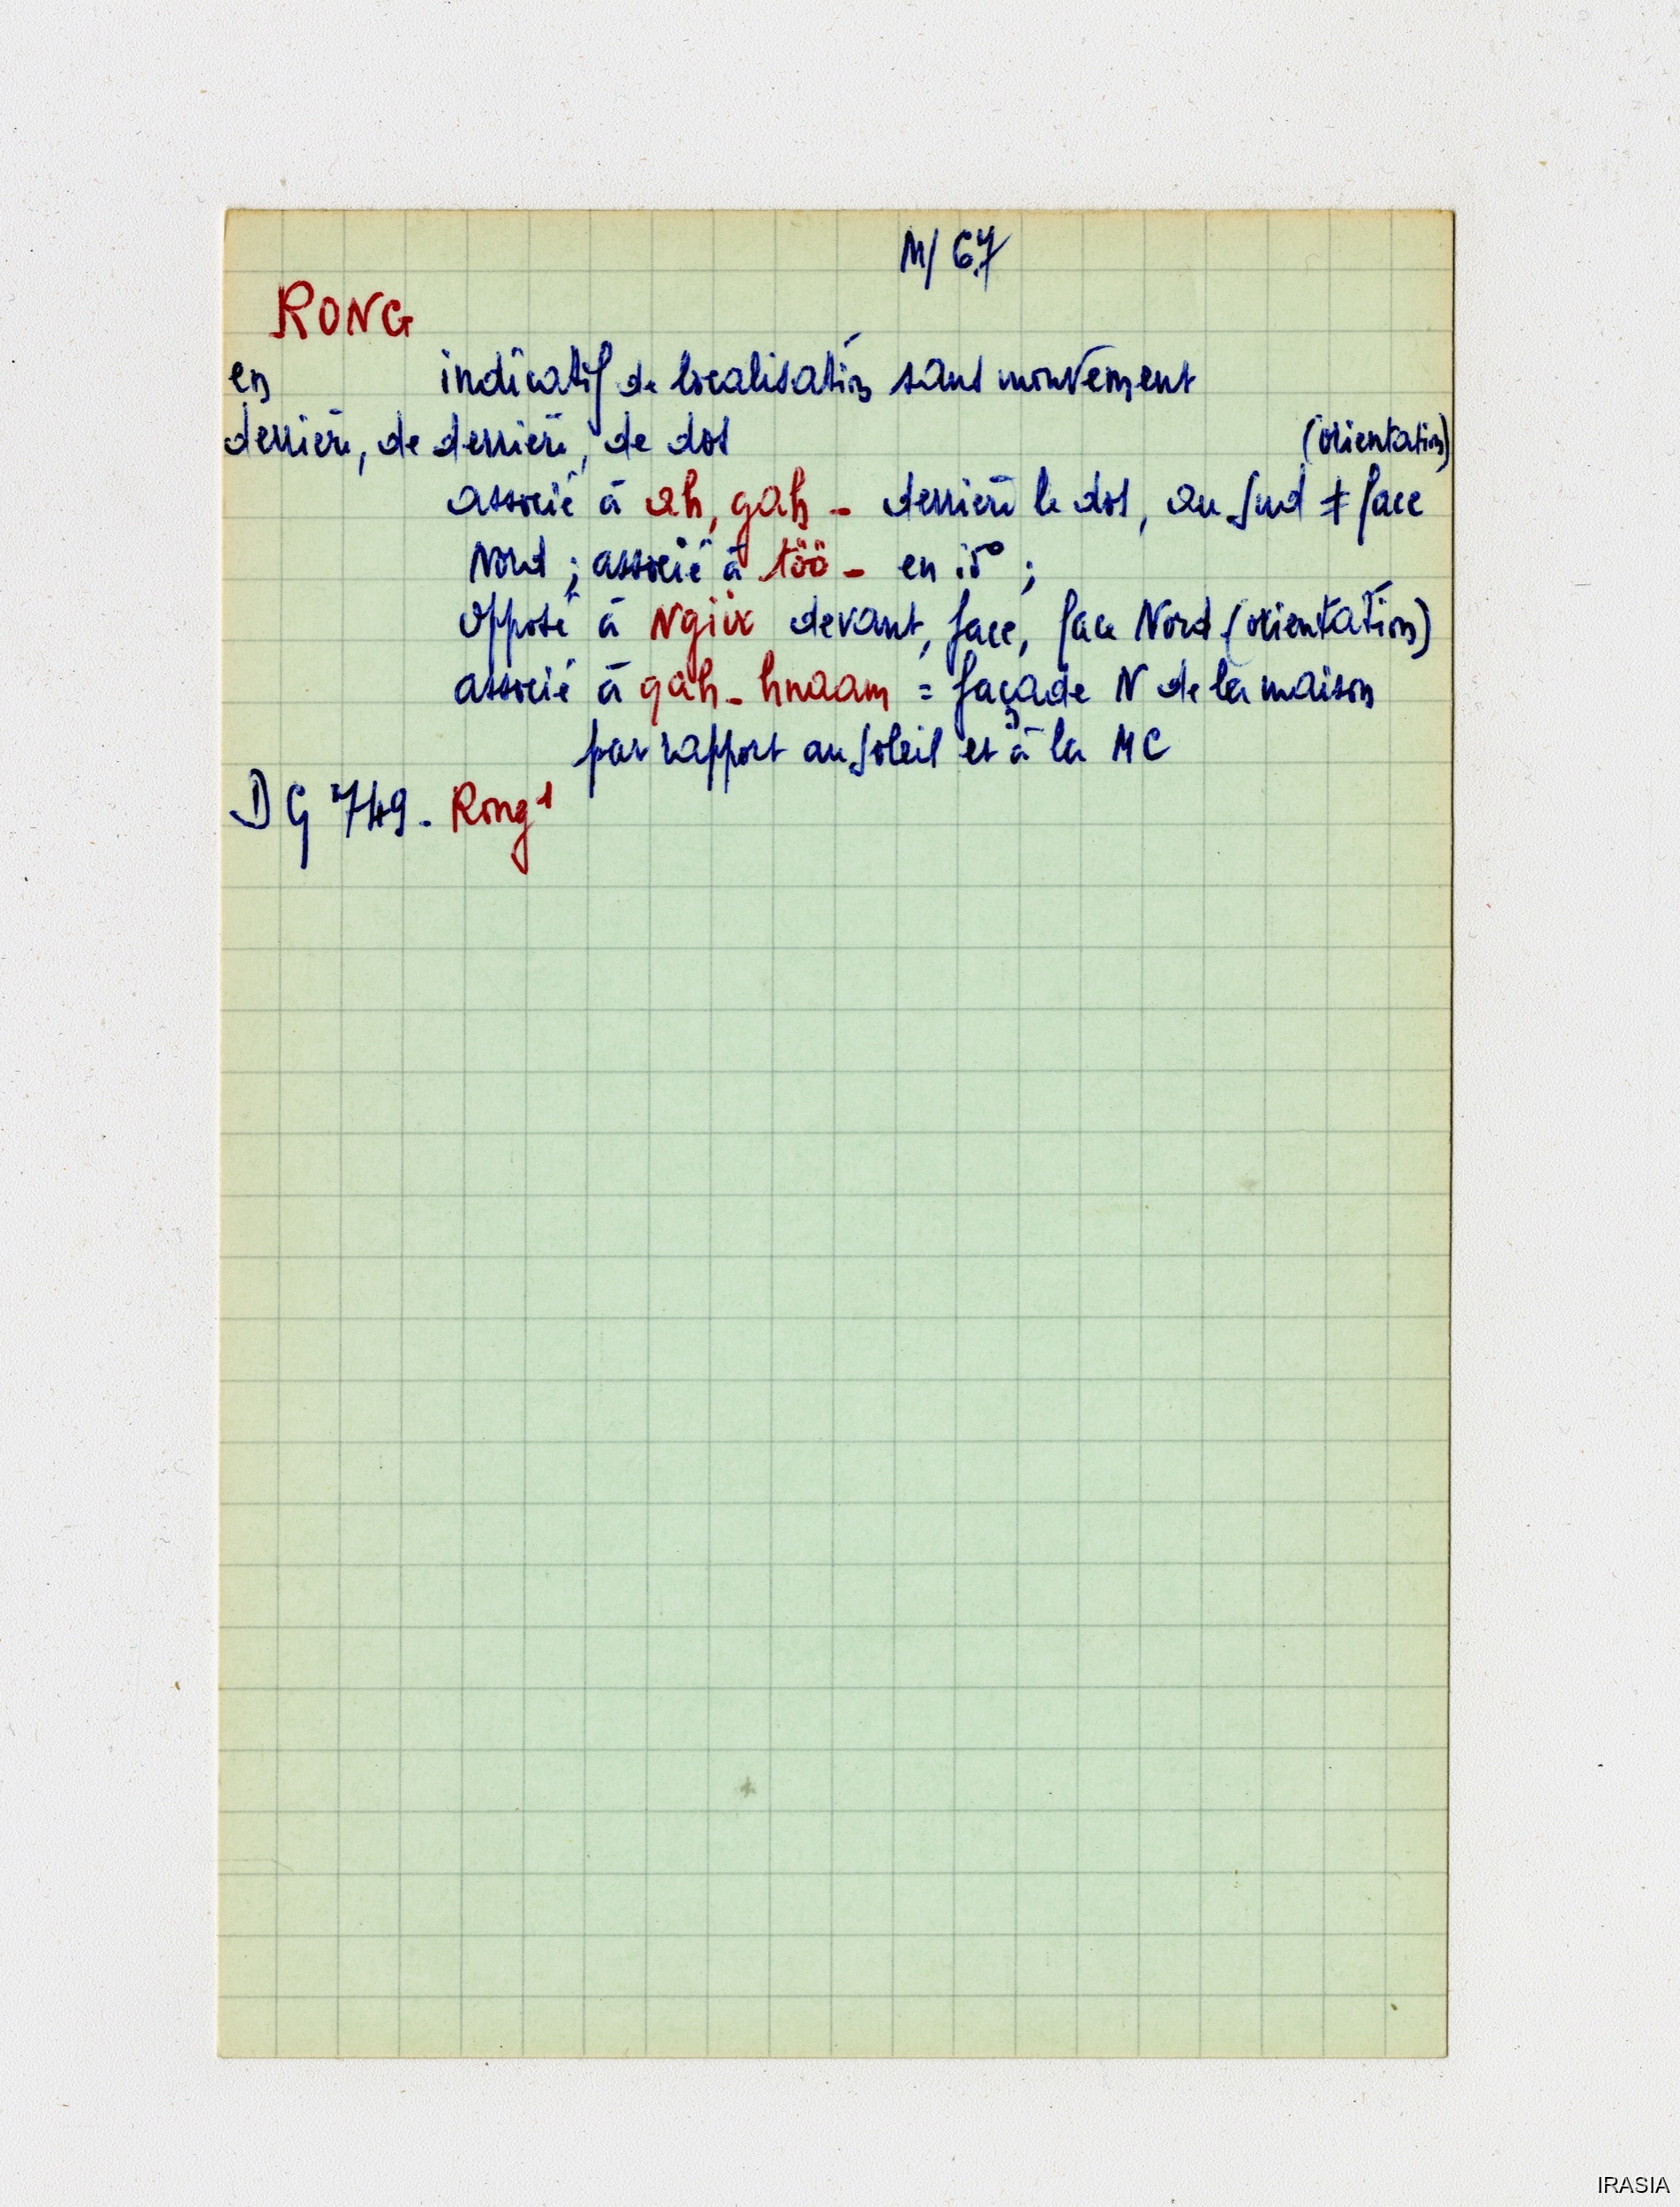 M/67
RONG
en indicatif de localisation sans mouvement
derrière, de derrière, de dos (orientation)
associé à ah, gah - derrière le dos, au Sud ≠ face
Nord ; associé à töö - en
opposé à Ngiix devant, face, face Nord (orientation)
associé à gah - hnaam = façade N de la maison
par rapport au soleil et à la MC
DG 749. Rong¹
IRASIA